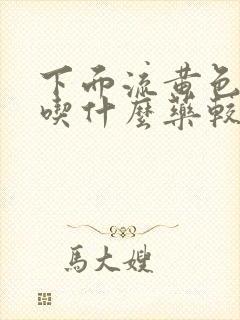 下而流黄色
喫什麼藥較
馬大嫂